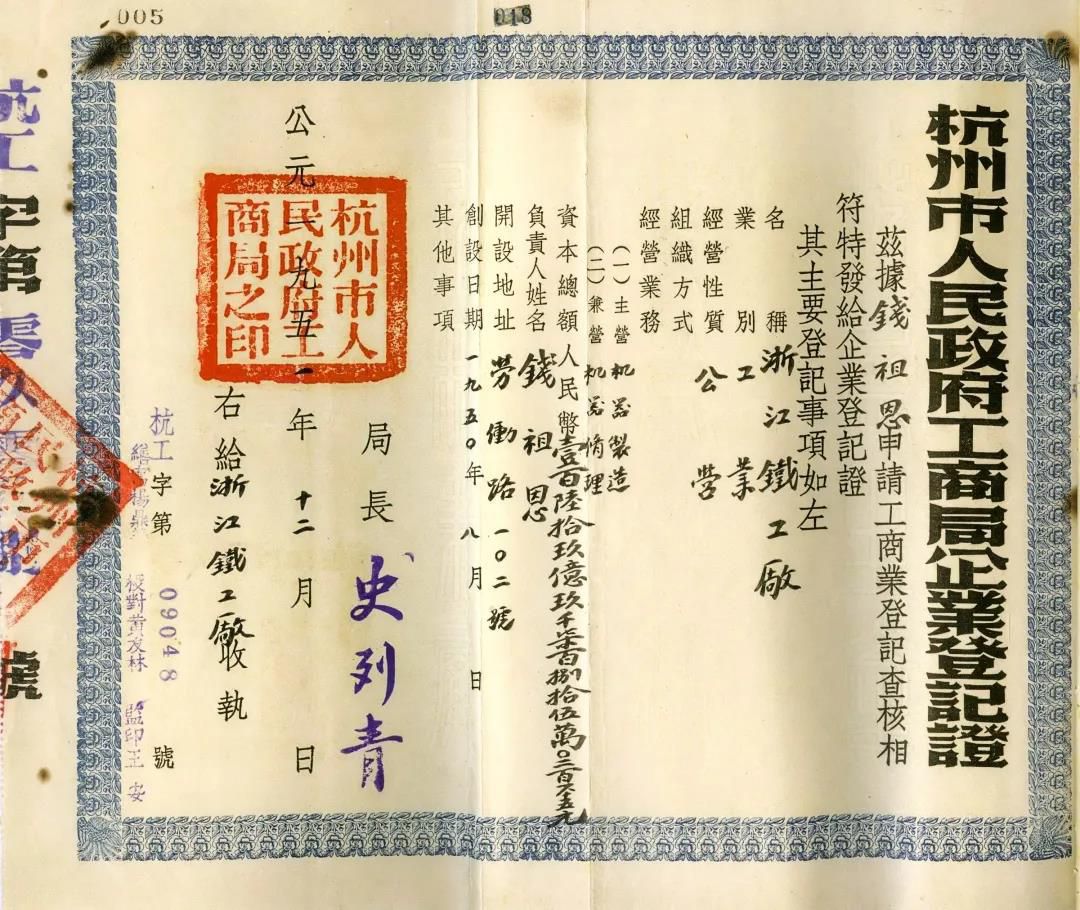 005
018
杭州市人民政府工商局公企業登記證
茲據錢祖恩申請工商業登記查核相
符特發給企業登記證
其主要登記事項如左
名稱 浙江鐵工廠
業別 工業
經營性質 公營
組織方式
經營業務
(一)主營 机器製造
(二)兼營 机器脩理
資本總額 人民幣壹百陸拾玖億玖千柒百捌拾伍萬
負責人姓名 錢祖恩
開設地址 劳働路一〇二號
創設日期 一九五〇年八月 日
其他事項
局長 史列青
公元一九五一年十二月 日
杭州市人
民政府工
商局之印
右給浙江鐵工廠收執
杭工字第09048號
校對黃友林 監印王安
杭工字第零玖 號